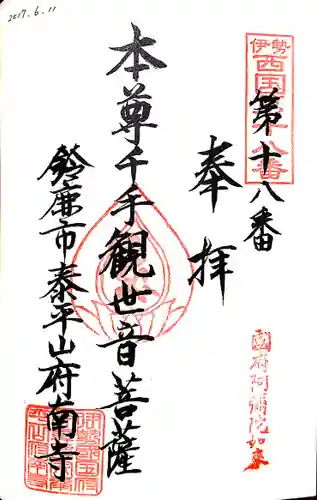 2017.6.11
伊勢
西国三十八番
第十八番
奉拝
本尊千手観世音菩薩
鈴鹿市泰平山府南寺
國府阿彌陀如来